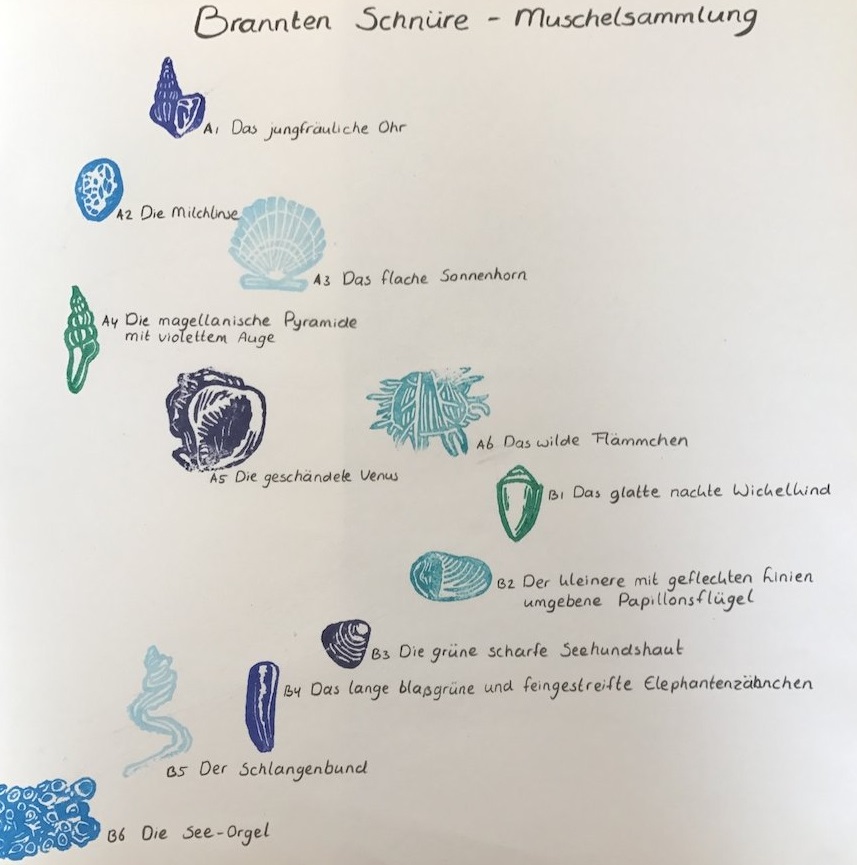 Brannten Schnüre - Muschelsammlung
A1 Das jungfräuliche Ohr
A2 Die Milchlinse
A3 Das flache Sonnenhorn
A4 Die magellanische Pyramide
mit violettem Auge
A5 Die geschändete Venus
A6 Das wilde Flämmchen
B1 Das glatte nackte Wickelkind
B2 Der kleinere mit geflechten Linien
umgebene Papillonsflügel
B3 Die grüne scharfe Seehundshaut
B4 Das lange blaßgrüne und feingestreifte Elephantenzähnchen
B5 Der Schlangenbund
B6 Die See-Orgel